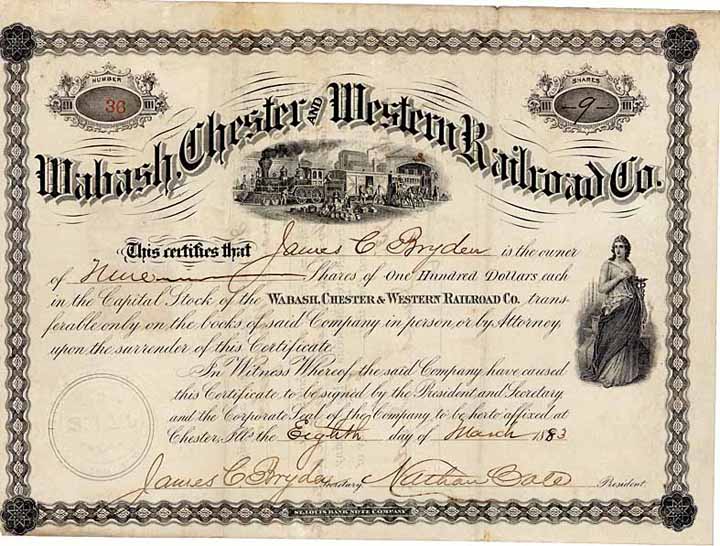 NUMBER
36
SHARES
9
Wabash, Chester AND Western Railroad Co.
This certifies that James C. Bryden is the owner
of Nine Shares of One Hundred Dollars each
in the Capital Stock of the WABASH, CHESTER & WESTERN RAILROAD CO. trans-
ferable only on the books of said Company in person or by Attorney
upon the surrender of this Certificate.
In Witness Whereof, the said Company have caused
this Certificate to be signed by the President and Secretary
and the Corporate Seal of the Company to be herto affixed at
Chester, Ills. the Eighth day of March 1883
James C Bryden Secretary. Nathan Cole President.
ST. LOUIS BANK NOTE COMPANY